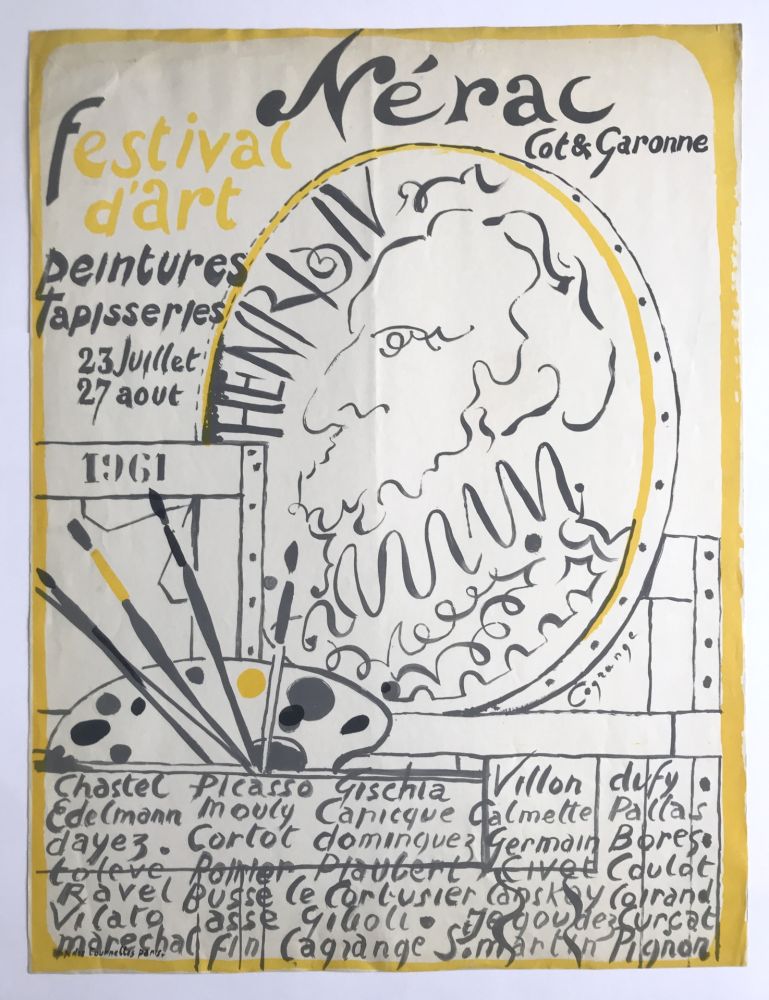 Nérac
Cot & Garonne
festival
d'art
peintures
tapisseries
23 Juillet
27 aout
HENRI IV
1961
Cagrange
Chastel Picasso Gischia Villon dufy
Edelmann mouly Capicque Calmette Pallas
dayez. Cortot dominguez Germain Bores
Civet Coulot
Ravel Busse le Corbusier Lanskoy Coirand
Vilato asse Gilioli Lurçat
marechal fin Cagrange St. martin Pignon
tournelles paris.